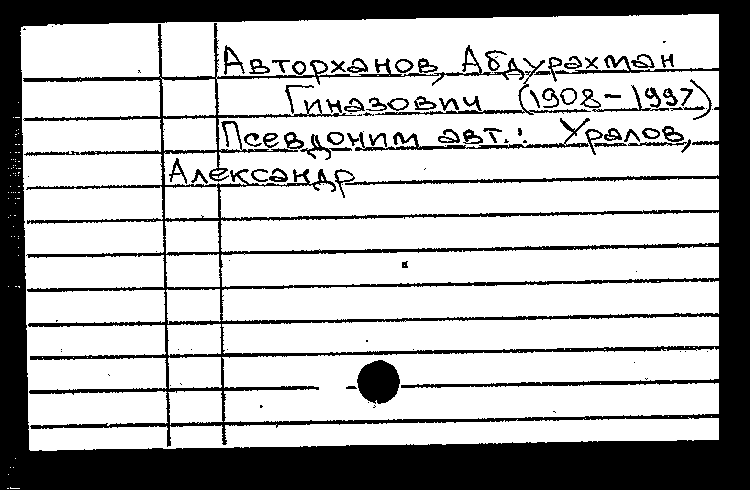 Авторханов, Абдурахман
Гиназович (1908-1997)
Псевдоним авт.: Уралов,
Александр